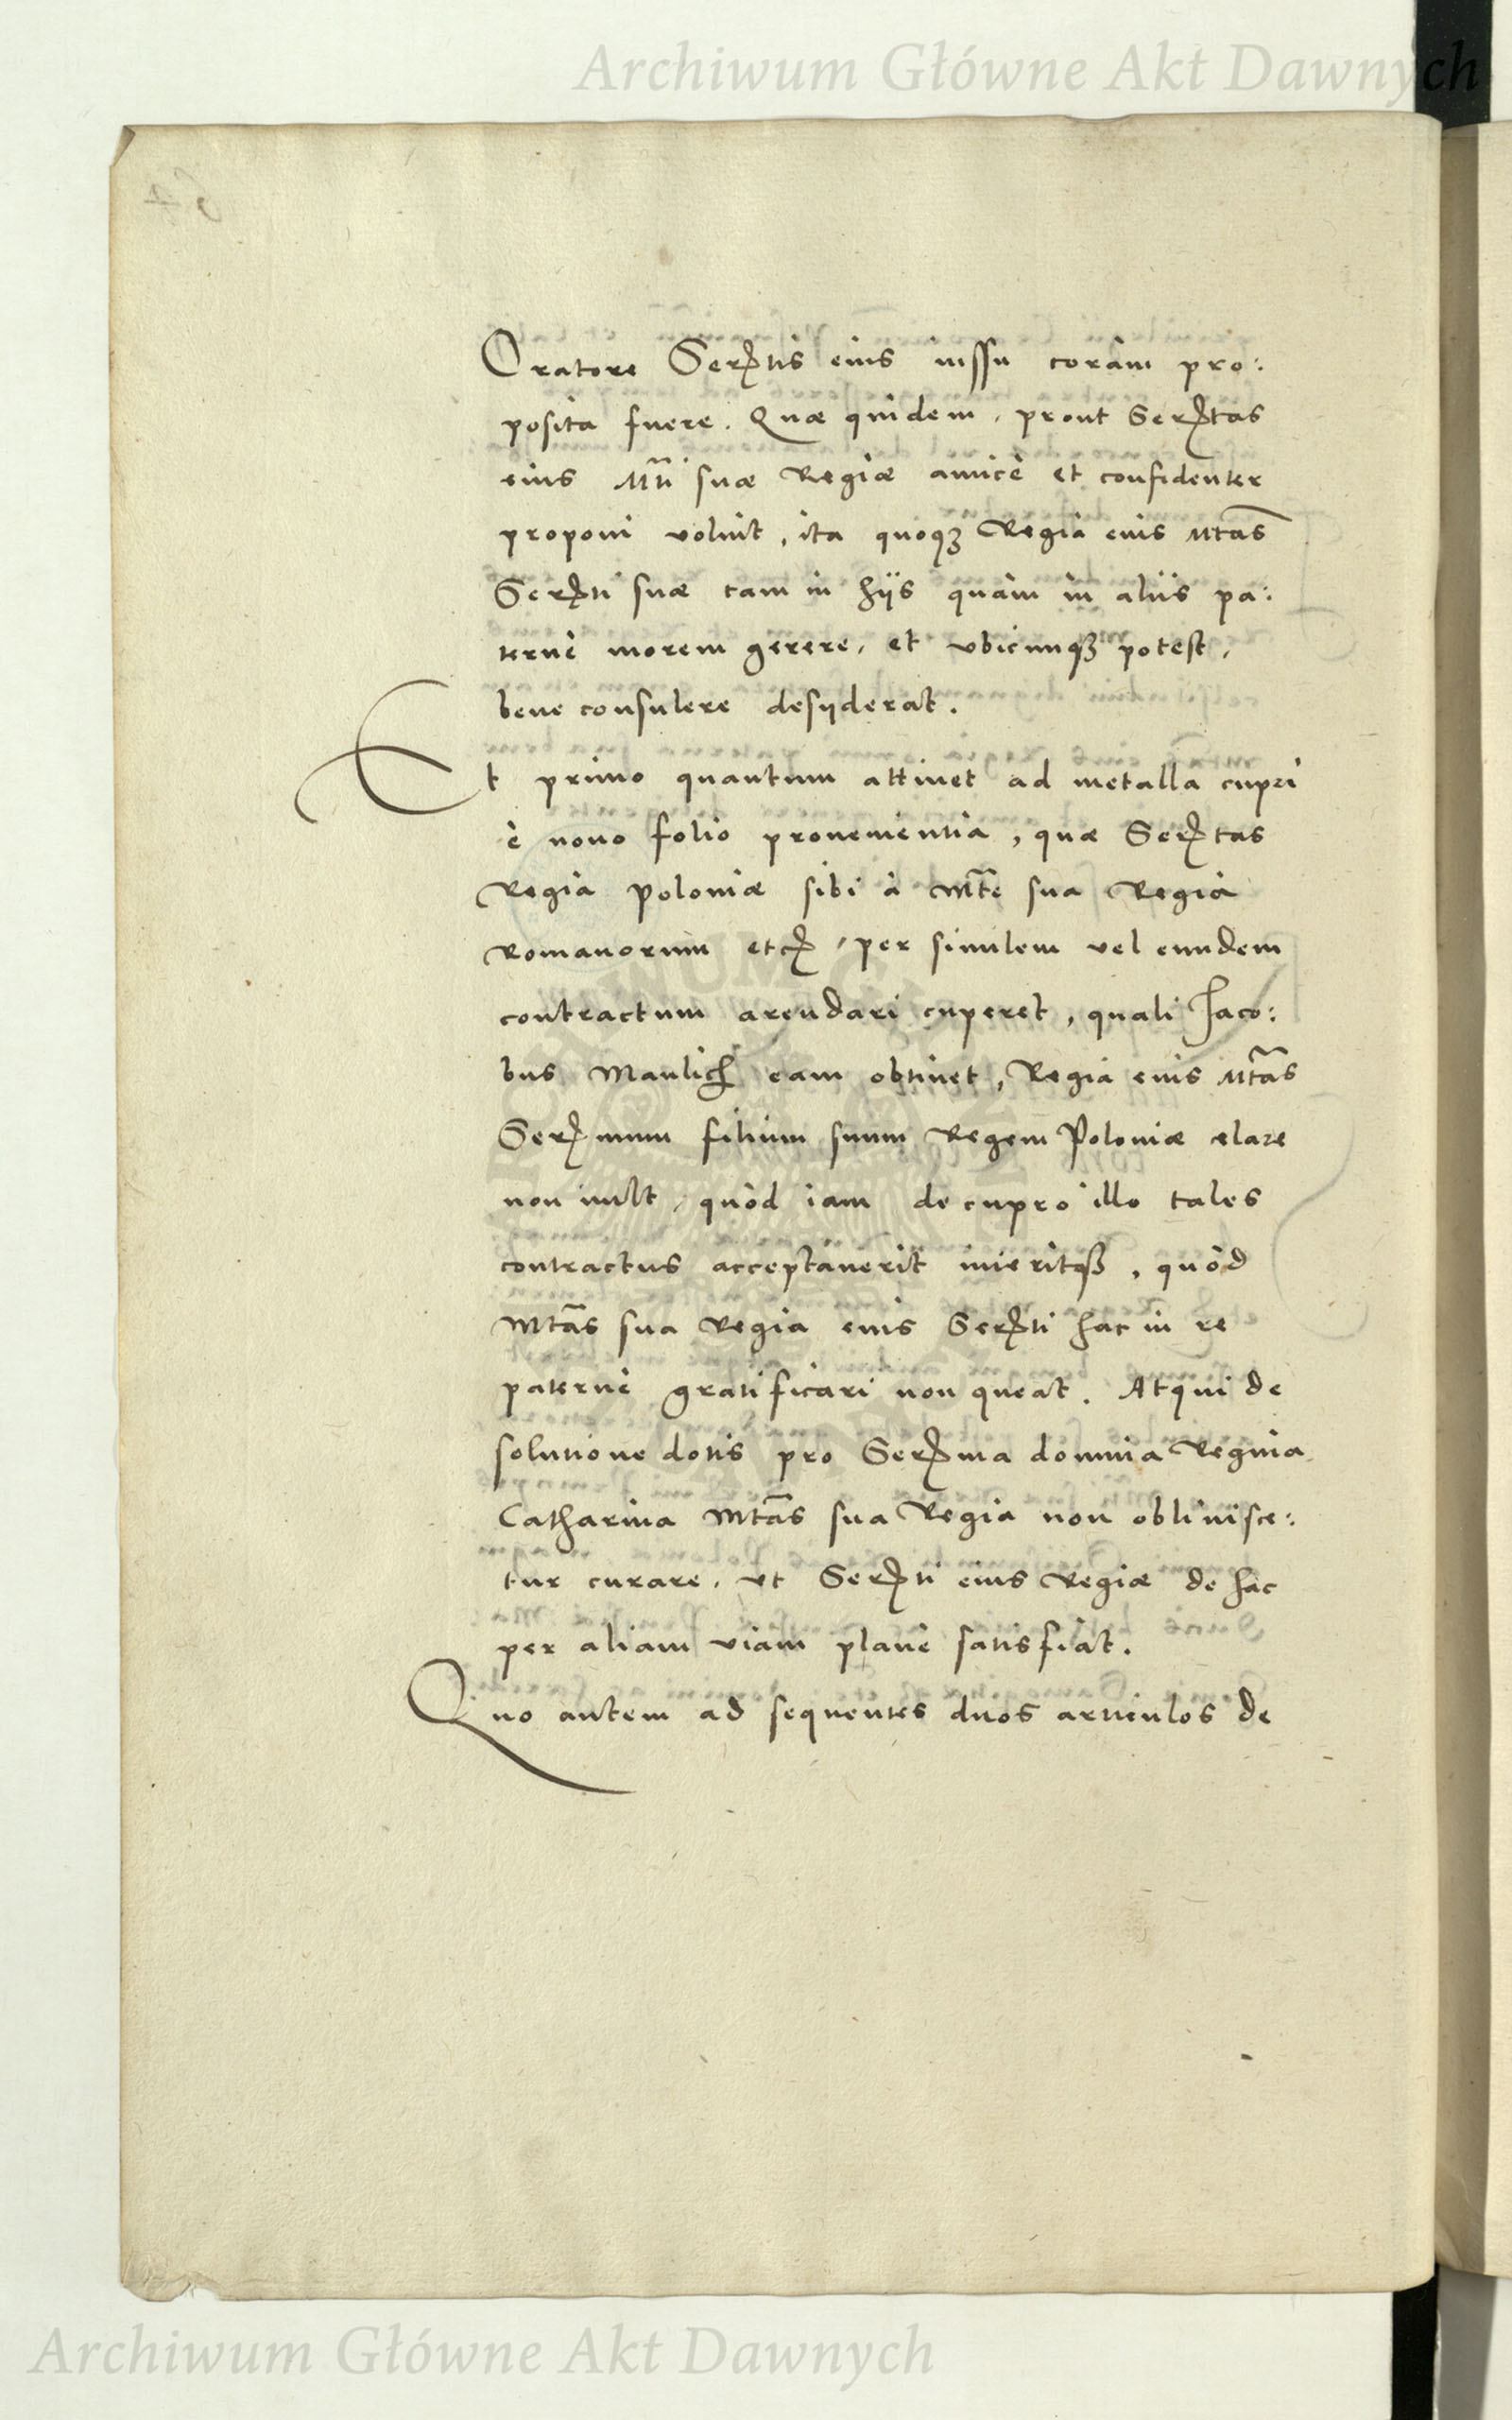 Archiwum Główne Akt Dawnych
Oratore Serꝭtis eius iussu coràm pro:
posita fuere. Quæ quidem, prout Serꝭtas
eius Mti suæ Regiæ amicè et confidenter
proponi voluit, ita quoqꝫ Regia eius Mtas
Serꝭti suæ tam in hijs quàm in aliis pa:
ternè morem gerere, et vbicunqꝫ potest,
bene consulere desyderat.
Et primo quantum attinet ad metalla cupri
è nouo folio prouenientia, quæ Serꝭtas
Regia Poloniæ sibi à Mte sua Regia
Romanorum etcꝭ, per similem vel eundem
contractum arendari cuperet, quali Jaco:
bus Manlich eam obtinet, Regia eius Mtas
Serꝭmum filium suum Regem Poloniæ elare
non uult, quòd iam de cupro illo tales
contractus acceptauerit inieritqꝫ, quòd
Mtas sua Regia eius Serꝭti hac in re
paternè gratificari non queat. Atqui de
solutione dotis pro Serꝭma domina Regina
Catharina Mtas sua Regia non obliuisce:
tur curare, vt Serꝭti eius Regiæ de hac
per aliam viam planè satisfiat.
Quo autem ad sequentes duos articulos de
Archiwum Główne Akt Dawnych